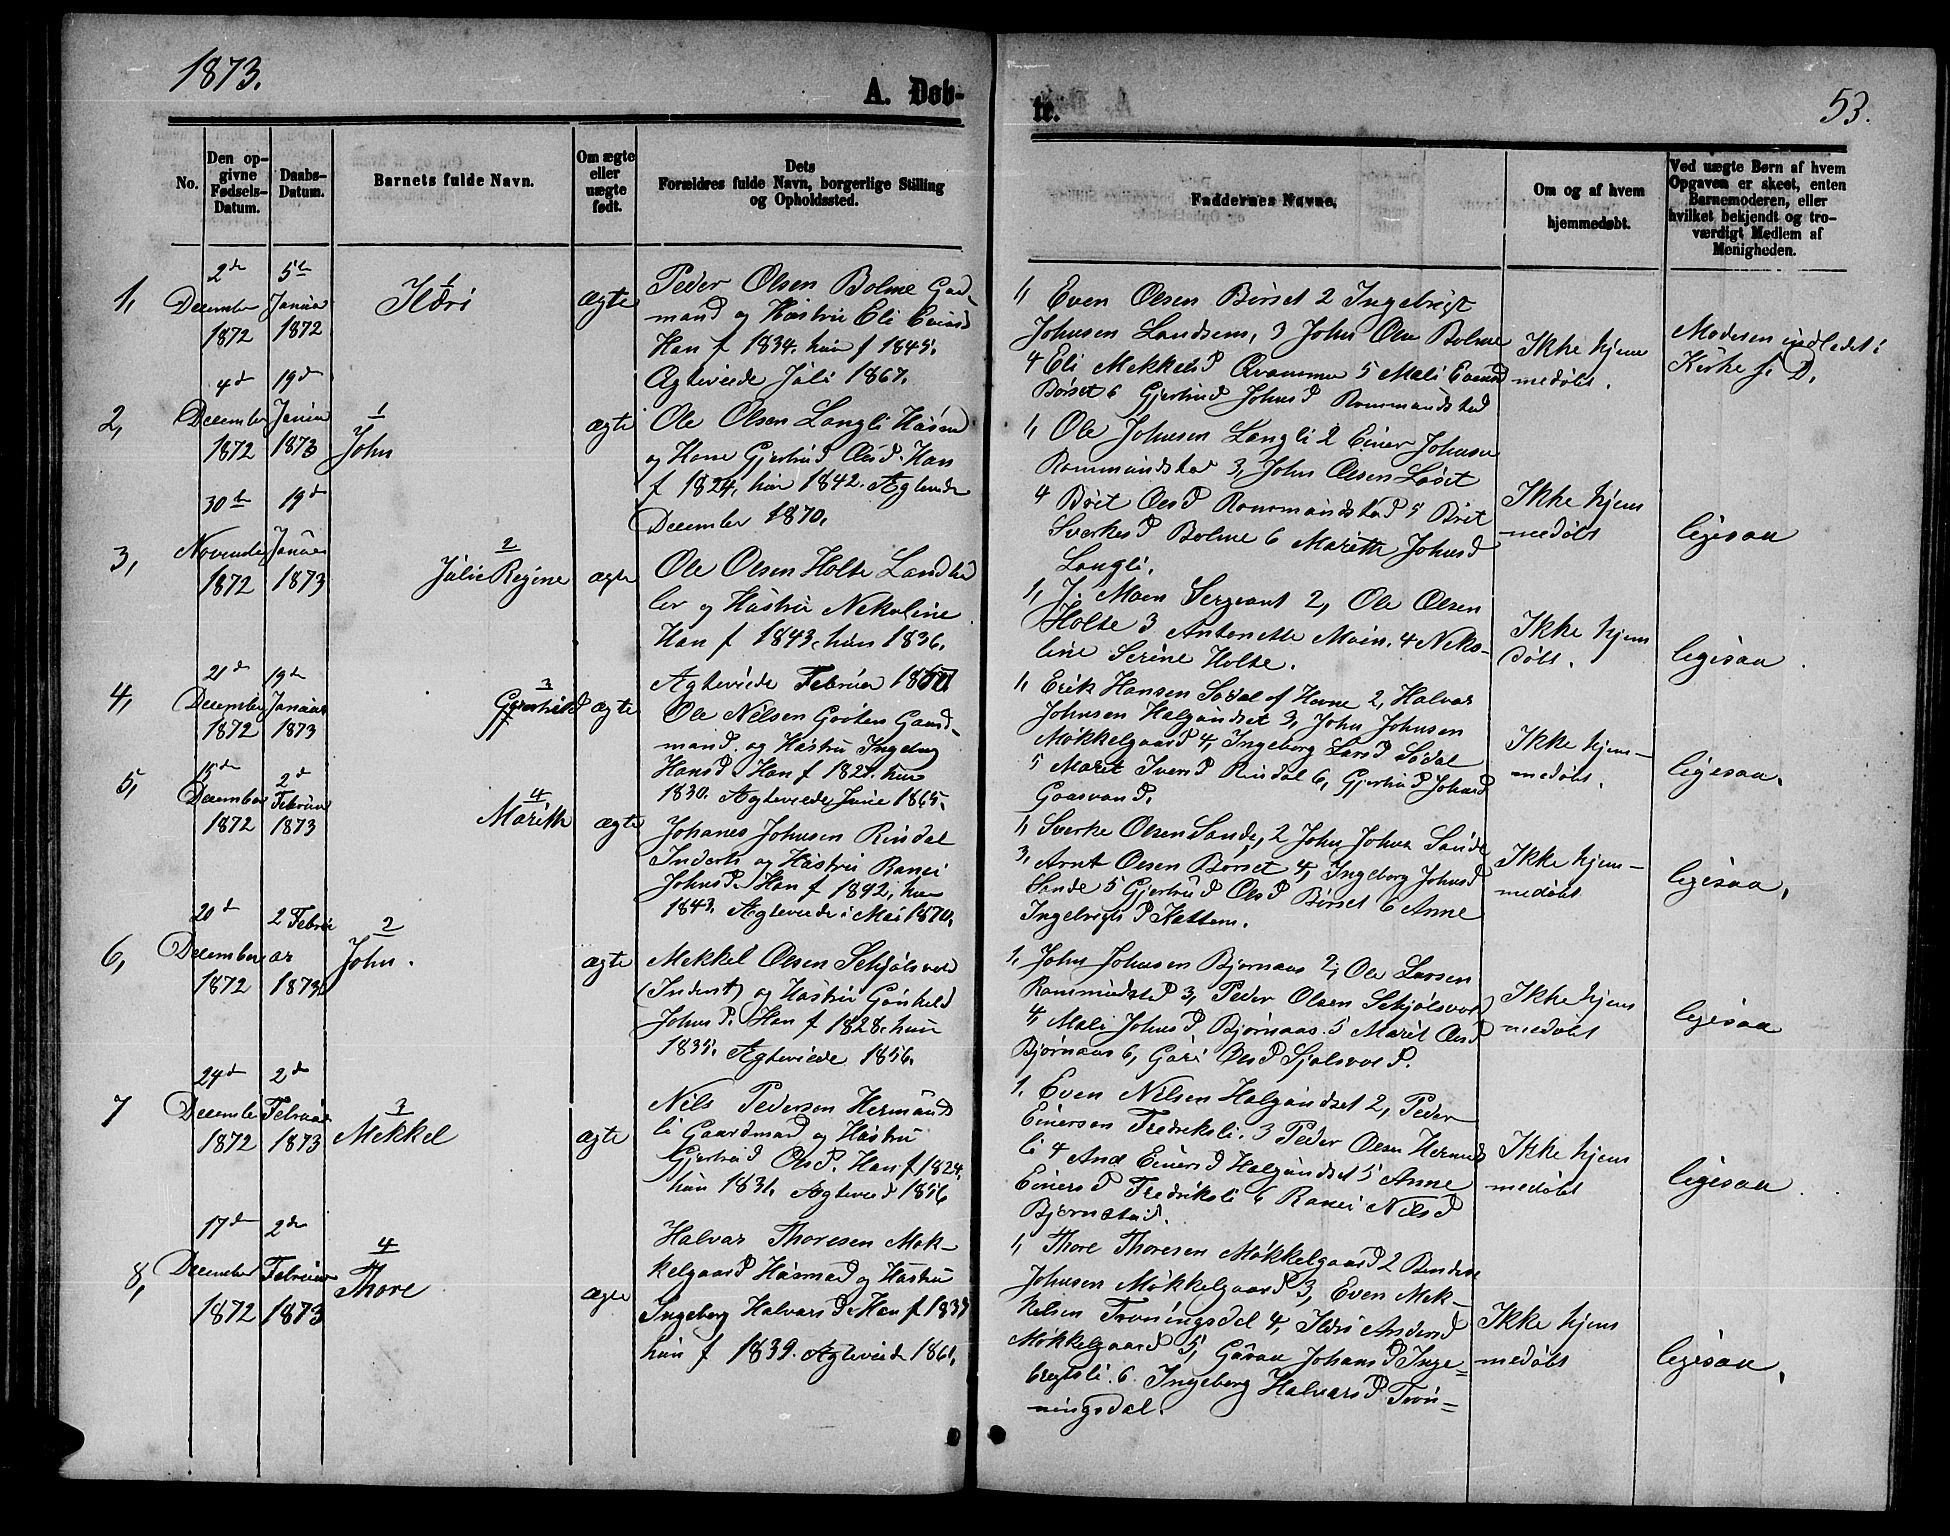 1873.
A. Døb-
te.
53.
No.
Den op-
givne
Fødsels-
Datum.
Daabs-
Datum.
Barnets fulde Navn.
Om ægte
eller
uægte
født.
Dets
Forældres fulde Navn, borgerlige Stilling
og Opholdssted.
Faddernes Navne.
Om og af hvem
hjemmedøbt.
Ved uægte Børn af hvem
Opgaven er skeet, enten
Barnemoderen, eller
hvilket bekjendt og tro-
værdigt Medlem af
Menigheden.
1,
2d
December
1872
5te
Januar
1872
1
Ildri
ægte
Peder Olsen Bolme Gad-
mand og Hustru Eli Evensd
Han f 1834. hun f 1845.
Ægteviede Juli 1867.
1, Even Olsen Børset 2 Ingebrigt
Johnsen Landsem, 3 John Olsen Bolme
4 Eli Mekkelsd Qvammen 5 Mali Evensd
Børset 6 Gjertrud Johnsd Rommundstad
Ikke hjem
medøbt.
Moderen indledet i
Kirke f. D.
2,
4d
December
1872
19d
Januar
1873
1
John
ægte
Ole Olsen Langli Husmd
og Kone Gjertrud Olsd. Han
f 1824, hun 1842. Ægteviede
December 1870.
1, Ole Johnsen Langli 2 Einer Johnsen
Rommundstad 3, John Olsen Løset
4 Børit Olsd Rommundstad 5 Brit
Sverkesd Bolme 6 Marith Johnsd
Langli.
Ikke hjem
medøbt
ligesaa
3,
30te
November
1872
19d
Januar
1873
2
Julie Regine
ægte
Ole Olsen Holte Landhand
ler og Hustru Nekoline
Han f 1843, hun 1836.
Ægteviede Februar
1, J. Moen Sergeant 2, Ole Olsen
Holte 3 Antonette Moen. 4 Neko-
line Serine Holte.
Ikke hjem
døbt.
ligesaa.
4,
21d
December
1872
19d
Januar
1873
3
Gjertrud
ægte
Ole Nilsen Gaard-
mand. og Hustru Ingeborg
Hansd. Han f 1827. hun
1830. Ægteviede Juni 1865.
1, Erik Hansen Sødal af Hevne 2, Halvar
Johnsen Halgundset 3, John Johnsen
Møkkelgaard 4, Ingeborg Larsd Sødal
5 Marit Ivensd Rindal 6, Gjertrud Johnsd
Gaasvand.
Ikke hjem-
medøbt.
ligesaa.
5,
15de
December
1872
2d
Februar
1873
4
Marith
ægte
Johanes Johnsen Rindal
Inderst og Hustru Ranei
Johnsd. Han f 1842, hun
1843. Ægteviede i Mai 1870.
1, Sverke Olsen Sande, 2 John Johns Sande
3, Arnt Olsen Børset 4, Ingeborg Johnsd
Sande 5 Gjertrud Olsd Børset 6 Anne
Ingebrigtsd Kattem.
Ikke hjem-
medøbt
ligesaa,
6,
20d
December
1872
2 Febru
ar
1873.
2
John.
ægte
Mekkel Olsen Schjølsvold
(Inderst) og Hustru Gunhild
Johnsd. Han f 1828. hun
1835. Ægteviede 1856.
1, John Johnsen Bjørnaas 2, Ole Larsen
Rommundstad 3, Peder Olsen Schjølsvold
4, Mali Johnsd Bjørnaas. 5 Marit Olsd
Bjørnaas 6, Guri Olsd Sjølsvold.
Ikke hjem
medøbt
ligesaa
7
24d
December
1872
2d
Februar
1873
3
Mekkel
ægte
Nils Pedersen Hermunds
li Gaardmand og Hustru
Gjertrud Olsd. Han f 1824.
hun 1831. Ægteviede 1856
1, Even Nilsen Halgundset 2, Peder
Einersen Fredriksli. 3 Peder Olsen Hermunds
li 4 And Einersd Halgundset 5 Anne
Einersd Fredriksli 6 Ranei Nilsd
Bjørnstad.
Ikke hjem
medøbt
ligesaa.
8,
17d
December
1872
2de
Februar
1873
4
Thore
ægte
Halvar Thoresen Møk-
kelgaard Husmand og Hustru
Ingeborg Halvarsd. Han f
hun f 1839. Ægteviede 1861.
1, Thore Thoresen Møkkelgaard 2
Johnsen Møkkelgaard 3, Even Mek-
kelsen Trøningsdal 4, Ildri Andersd
Møkkelgaard 5, Guruu Johansd Inge-
brigtsli. 6. Ingeborg Halvarsd Trøn-
ningsdal.
Ikke hjem
medøbt
ligesaa,